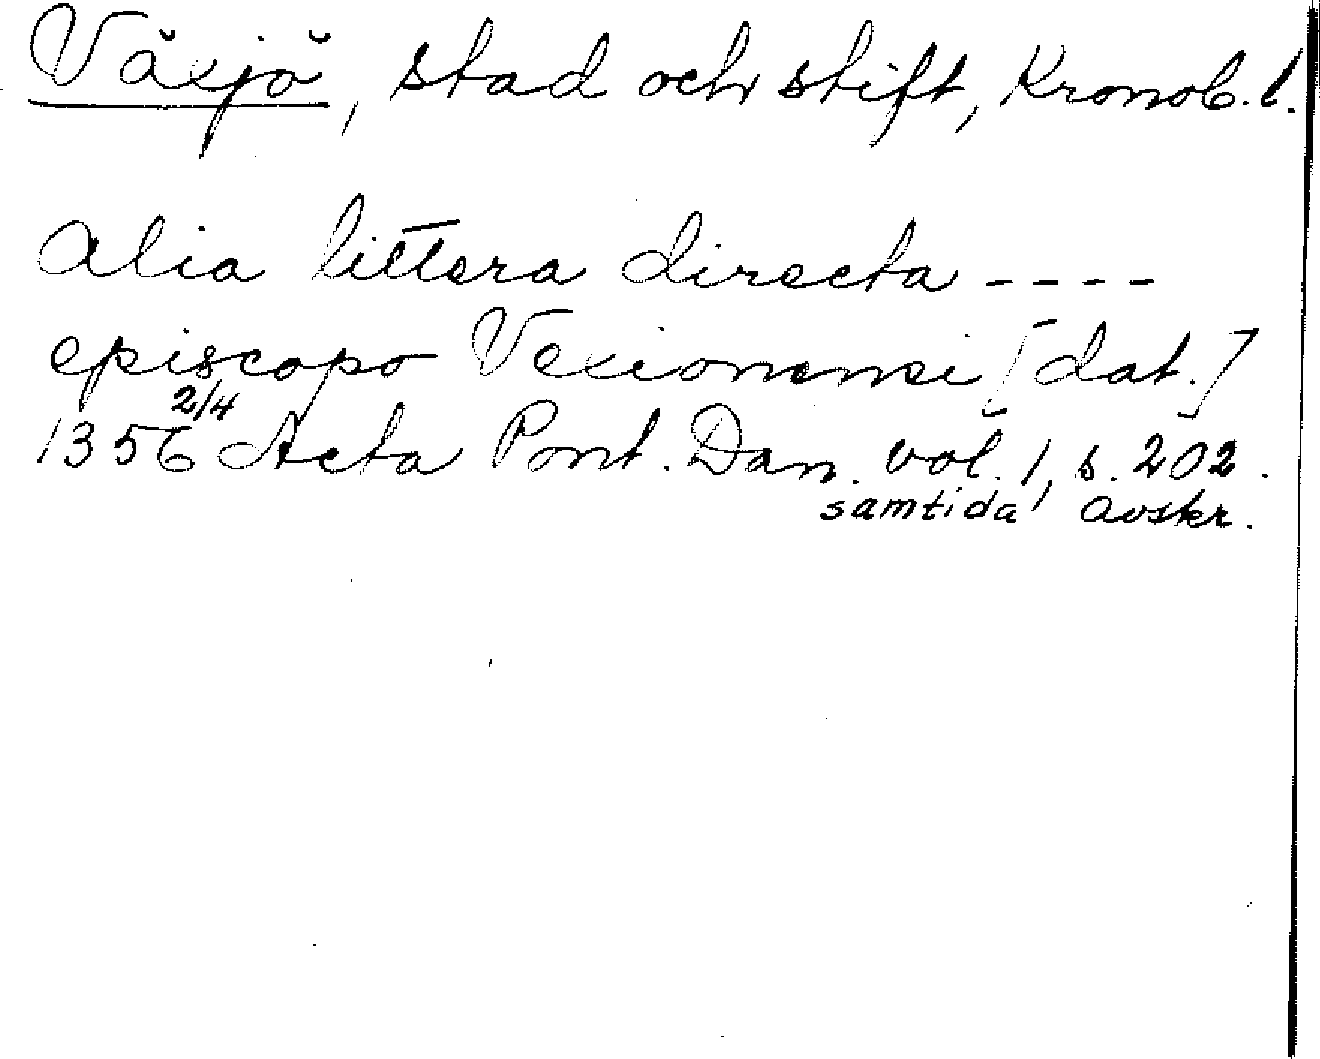 Växjö, stad och stift, Kronob. l.
Alia littera directa ----
episcopo Vexionensi [dat.]
1356 2/4 Acta Pont. Dan. vol. 1, s. 202.
samtida avskr.